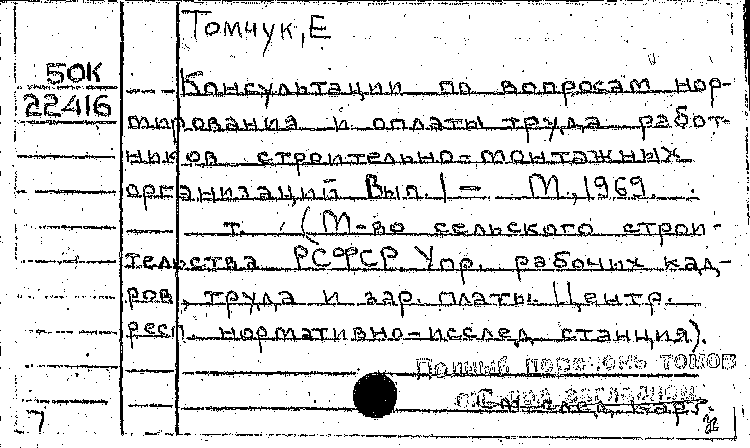 Томчук, Е
50К
22416
Консультации по вопросам нор-
мирования и оплаты труда работ-
ников строительно-монтажных
организаций Вып. 1 — М., 1969.
т. (М-во сельского строи-
тельства РСФСР. Упр. рабочих кад-
ров, труда и зар. платы. Центр.
респ. нормативно-исслед. станция).
Полный перечень томов
см. след. карт.
7